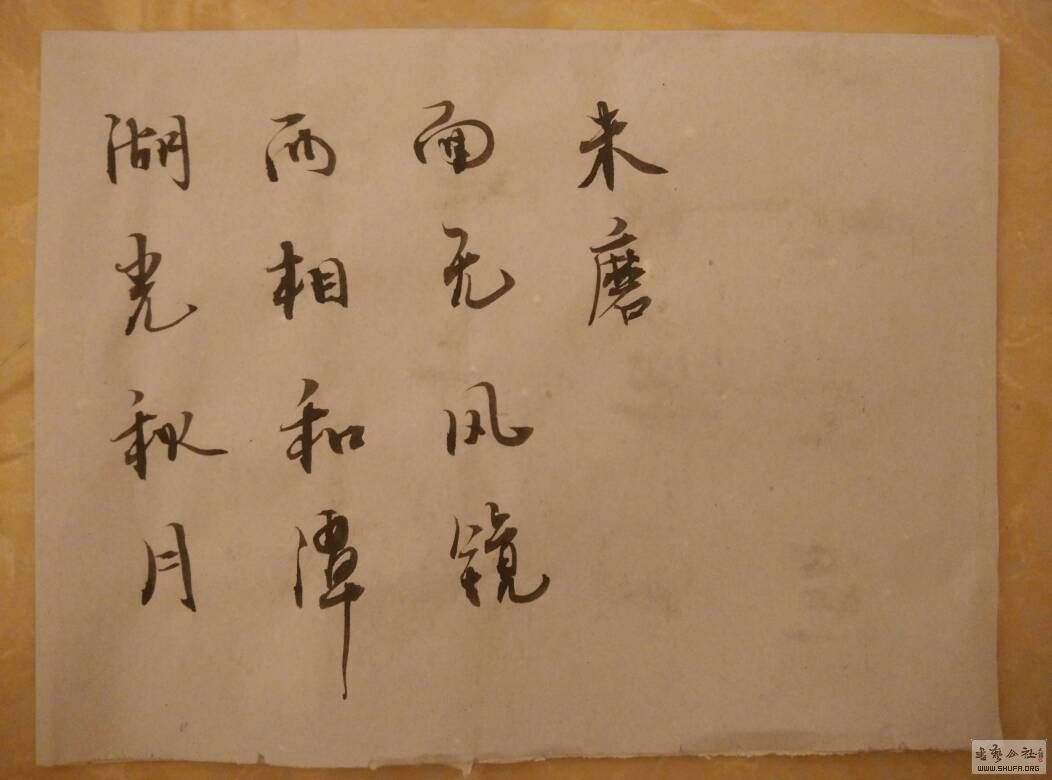 湖光秋月
两相和潭
面无风镜
未磨
书艺公社
WWW.SHUFA.ORG